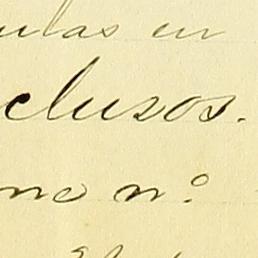 ulas en
clusos.
ne n.º